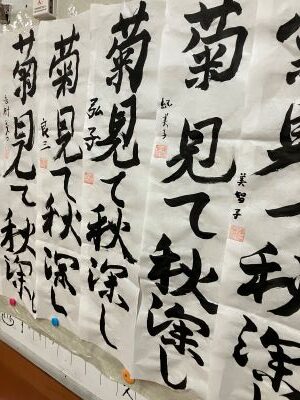 菊見て秋深
美智子
菊見て秋深し
紀美子
菊見て秋深し
弘子
菊見て秋深し
良三
菊見て秋深し